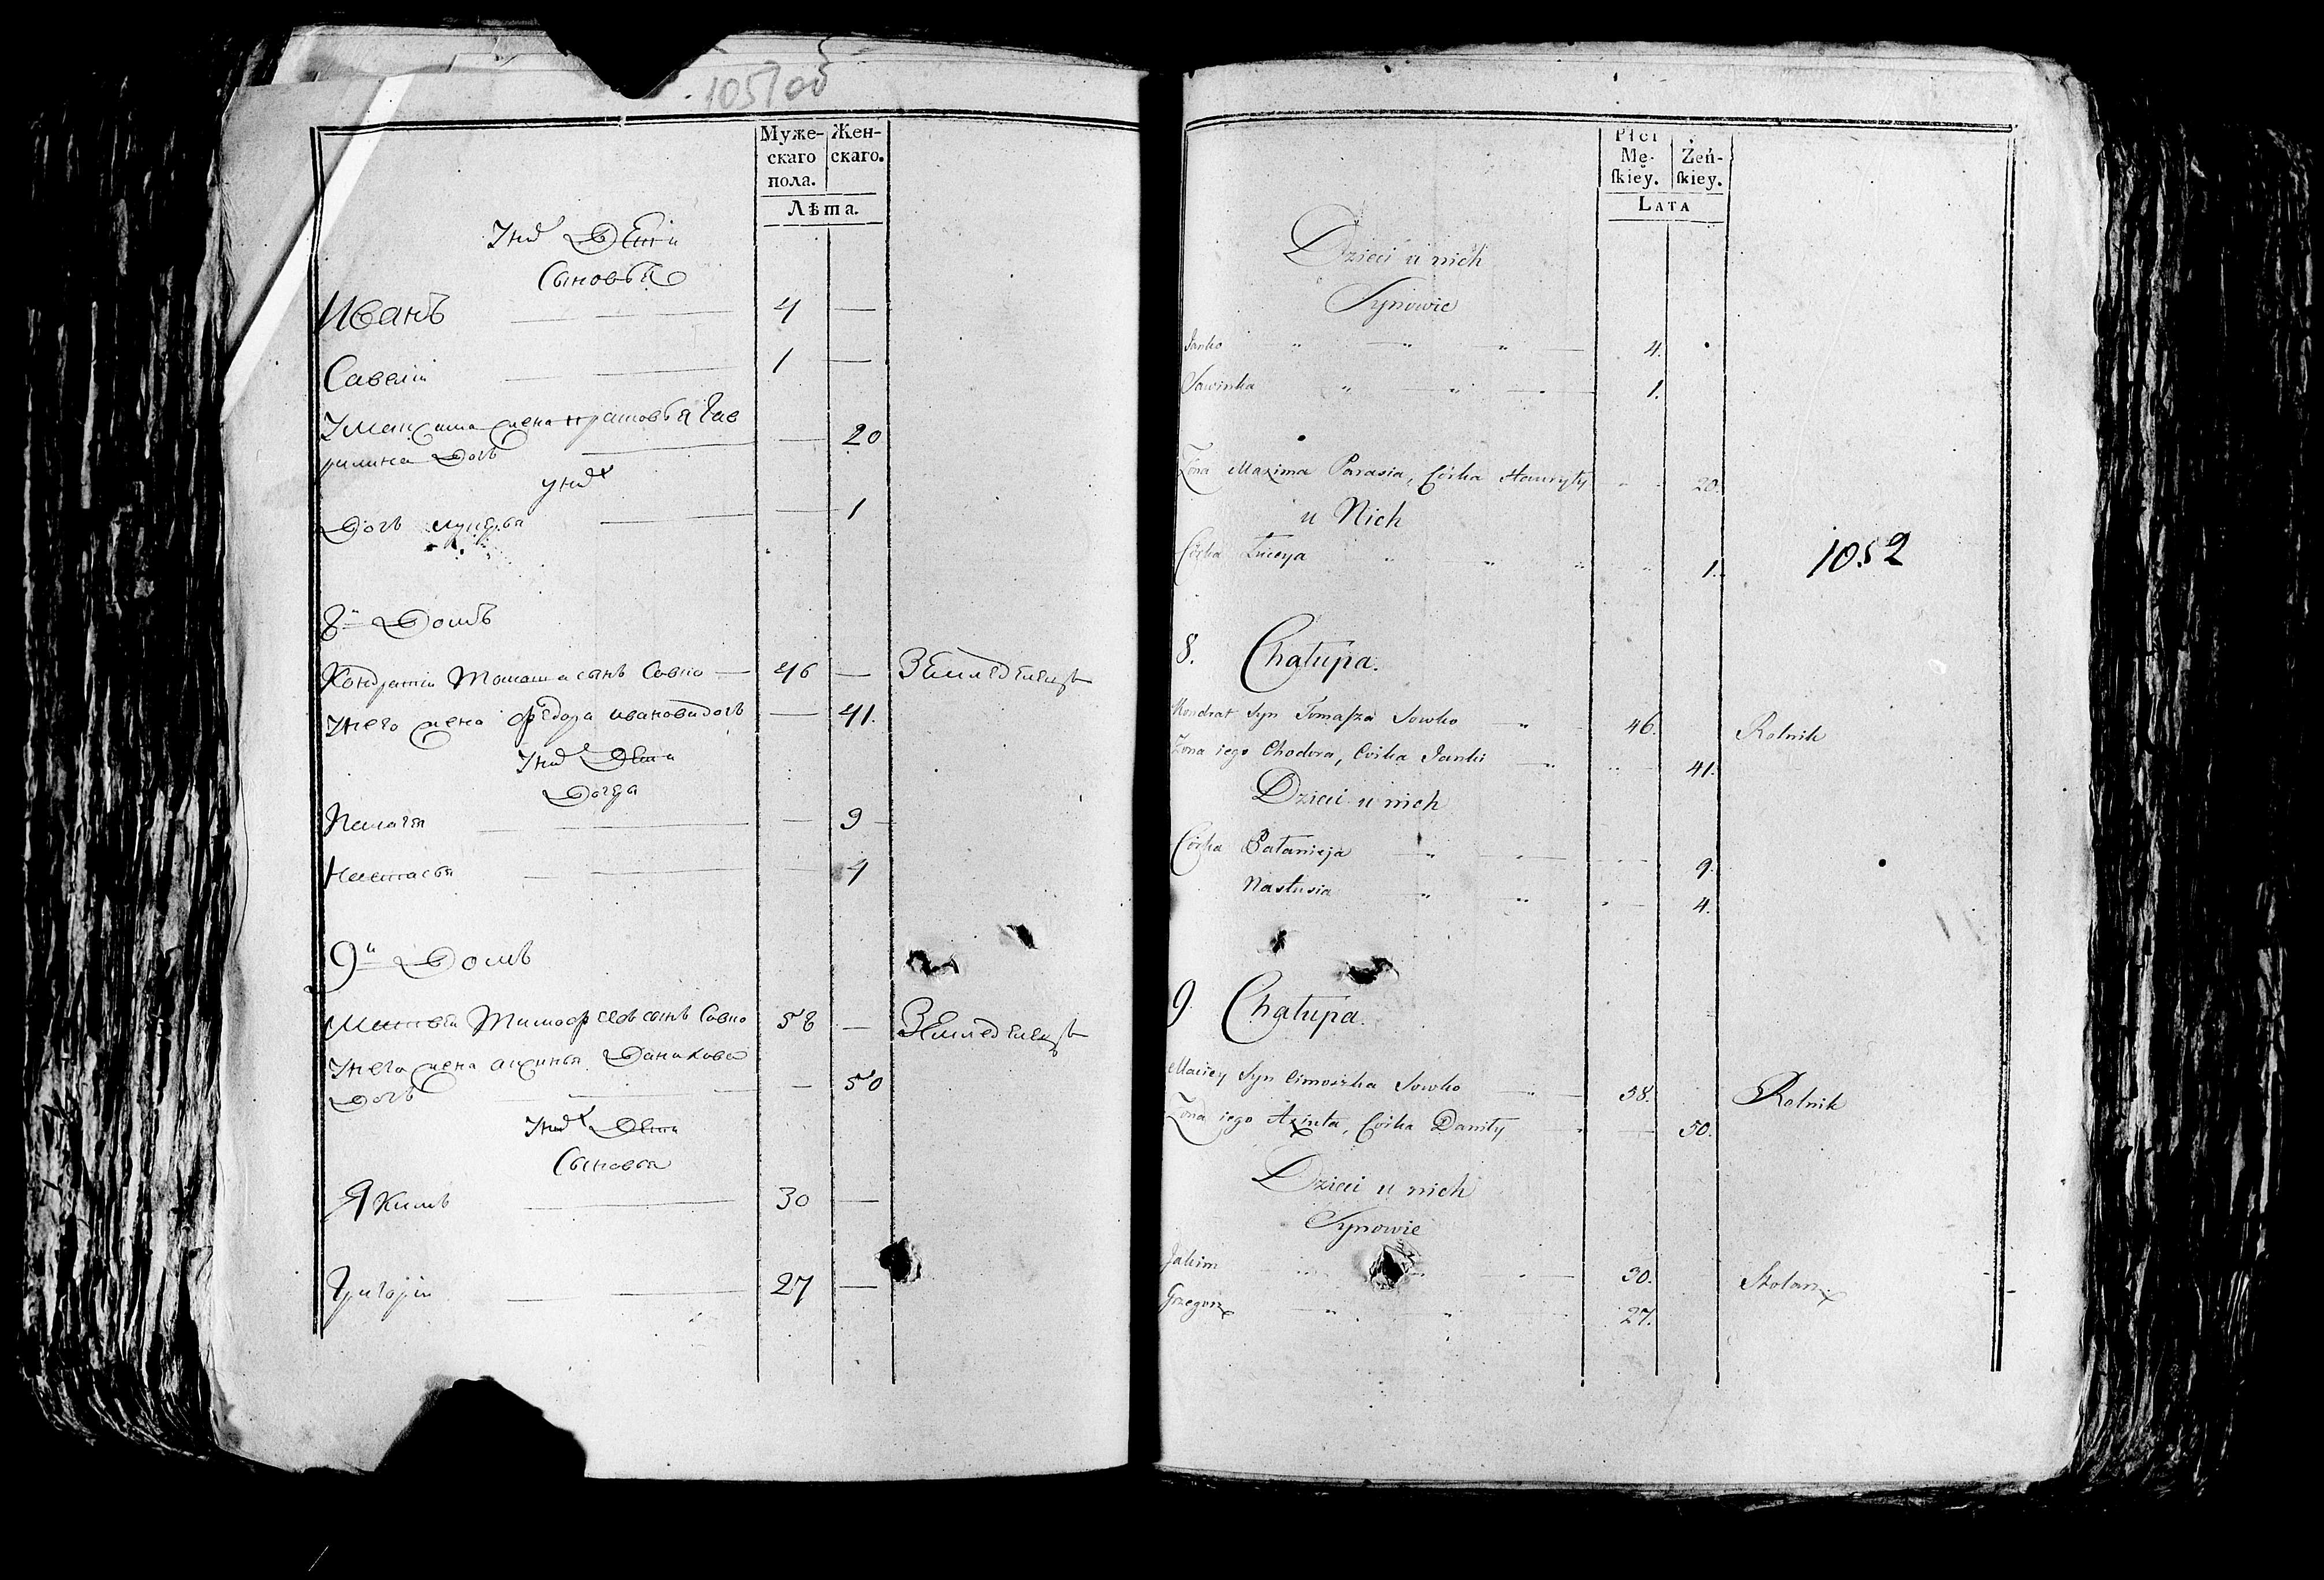 1051об
Муже-
скаго
пола.
Жен-
скаго.
Лѣта.
У них Дети
Сыновья
Иванъ 4 —
Савелiй 1 —
У Максима жена Прасовья Гав
рилина Дочь — 20
у них
Дочь Луцея — 1
8й Домъ
Кондратiй Томаша сынъ Савко — 46 — Земледелецъ
У него жена Федора Иванова дочь — 41.
У них Дети
Дочери
Палагея — 9
Настасья — 4
9й Домъ
Матвей Тимофеевъ сынъ Савко 58 — Земледелецъ
У него жена Аксинья Данилова
Дочь — 50
У них Дети
Сыновья
Якимъ 30 —
Григорiй 27 —
Płci
Mę-
skiey.
Żeń-
skiey.
LATA
Dzieci u nich
Synowie
Janko 4.
Sawinka 1.
Żona Maxima Parasia, Córka Hawryły 20.
u Nich
Córka Łuceya 1.
1052
8. Chałupa.
Kondrat Syn Tomasza Sowko 46. Rolnik
Żona iego Chodora, Córka Janki 41.
Dzieci u nich
Córka Pałanieja 9.
Nastusia 4.
9. Chałupa.
Maciey Syn Cimoszka Sowko 58. Rolnik
Żona iego Axinta, Córka Daniły 50.
Dzieci u nich
Synowie
Jakim 30. Stolarz
Grzegorz 27.